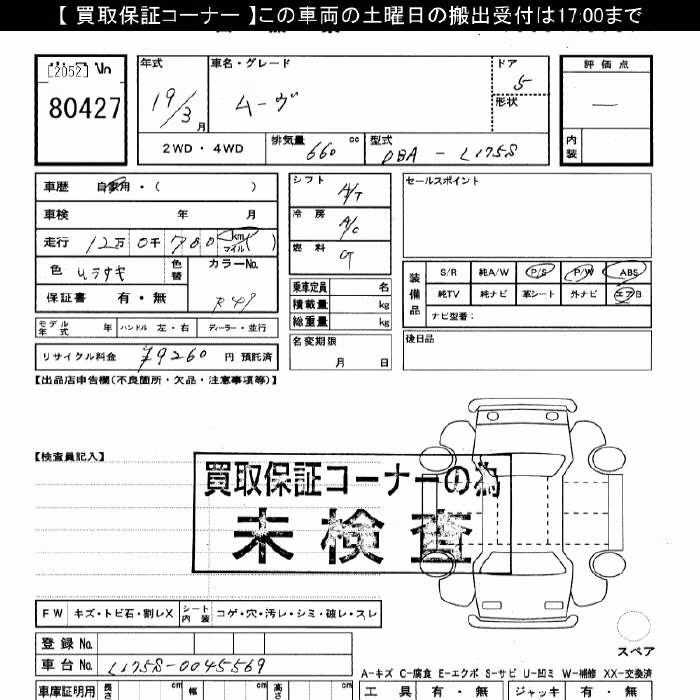 【 買取保証コーナー 】この車両の土曜日の搬出受付は17:00まで
[2052] No
80427
年式
19/3 月
車名・グレード
ムーヴ
ドア
5
形状
評価点
—
内装
2WD・4WD
排気量 660 cc
型式 DBA-L175S
車歴 自家用・( )
車検 年 月
走行 12万 0千 780 km マイル ( )
色 ムラサキ 色替
カラーNo.
R49
保証書 有・無
モデル年式 年 ハンドル 左・右 ディーラー・並行
リサイクル料金 ¥9260 円 預託済
シフト A/T
冷房 A/C
燃料 G
乗車定員 名
積載量 kg
総重量 kg
名変期限
月 日
セールスポイント
装備品
S/R 純A/W P/S P/W ABS
純TV 純ナビ 革シート 外ナビ エアB
ナビ型番:
後日品
【出品店申告欄(不良箇所・欠品・注意事項等)】
【検査員記入】
買取保証コーナーの為
未検査
FW キズ・トビ石・割レX シート内装 コゲ・穴・汚レ・シミ・破レ・スレ
スペア
登録 No.
車台 No. L175S-0045569
A-キズ C-腐食 E-エクボ S-サビ U-凹ミ W-補修 XX-交換済
車庫証明用 長さ cm 幅 cm 高さ cm
工具 有・無 ジャッキ 有・無